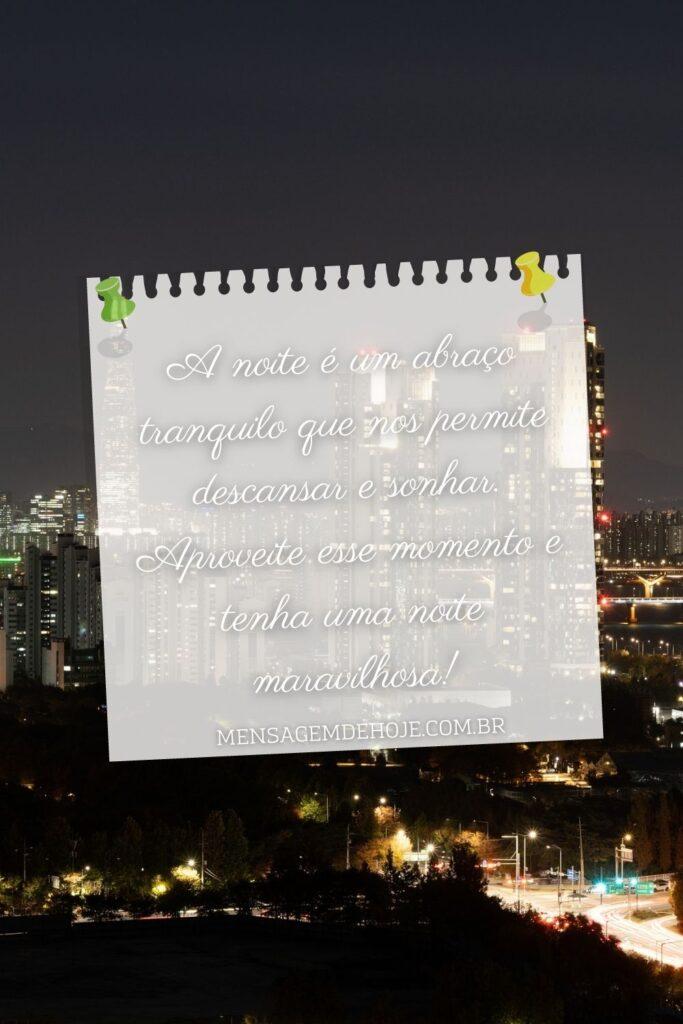 A noite é um abraço
tranquilo que nos permite
descansar e sonhar.
Aproveite esse momento e
tenha uma noite
maravilhosa!
MENSAGEMDEHOJE.COM.BR